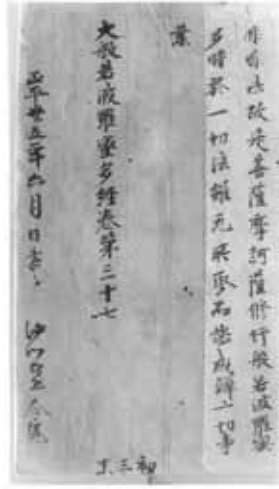 故是菩薩摩訶薩修行般若波羅蜜
多時於一切法雖无所取而能成辦一切事
業
大般若波羅蜜多經卷第三十七
正平廿五年六月日書
沙門